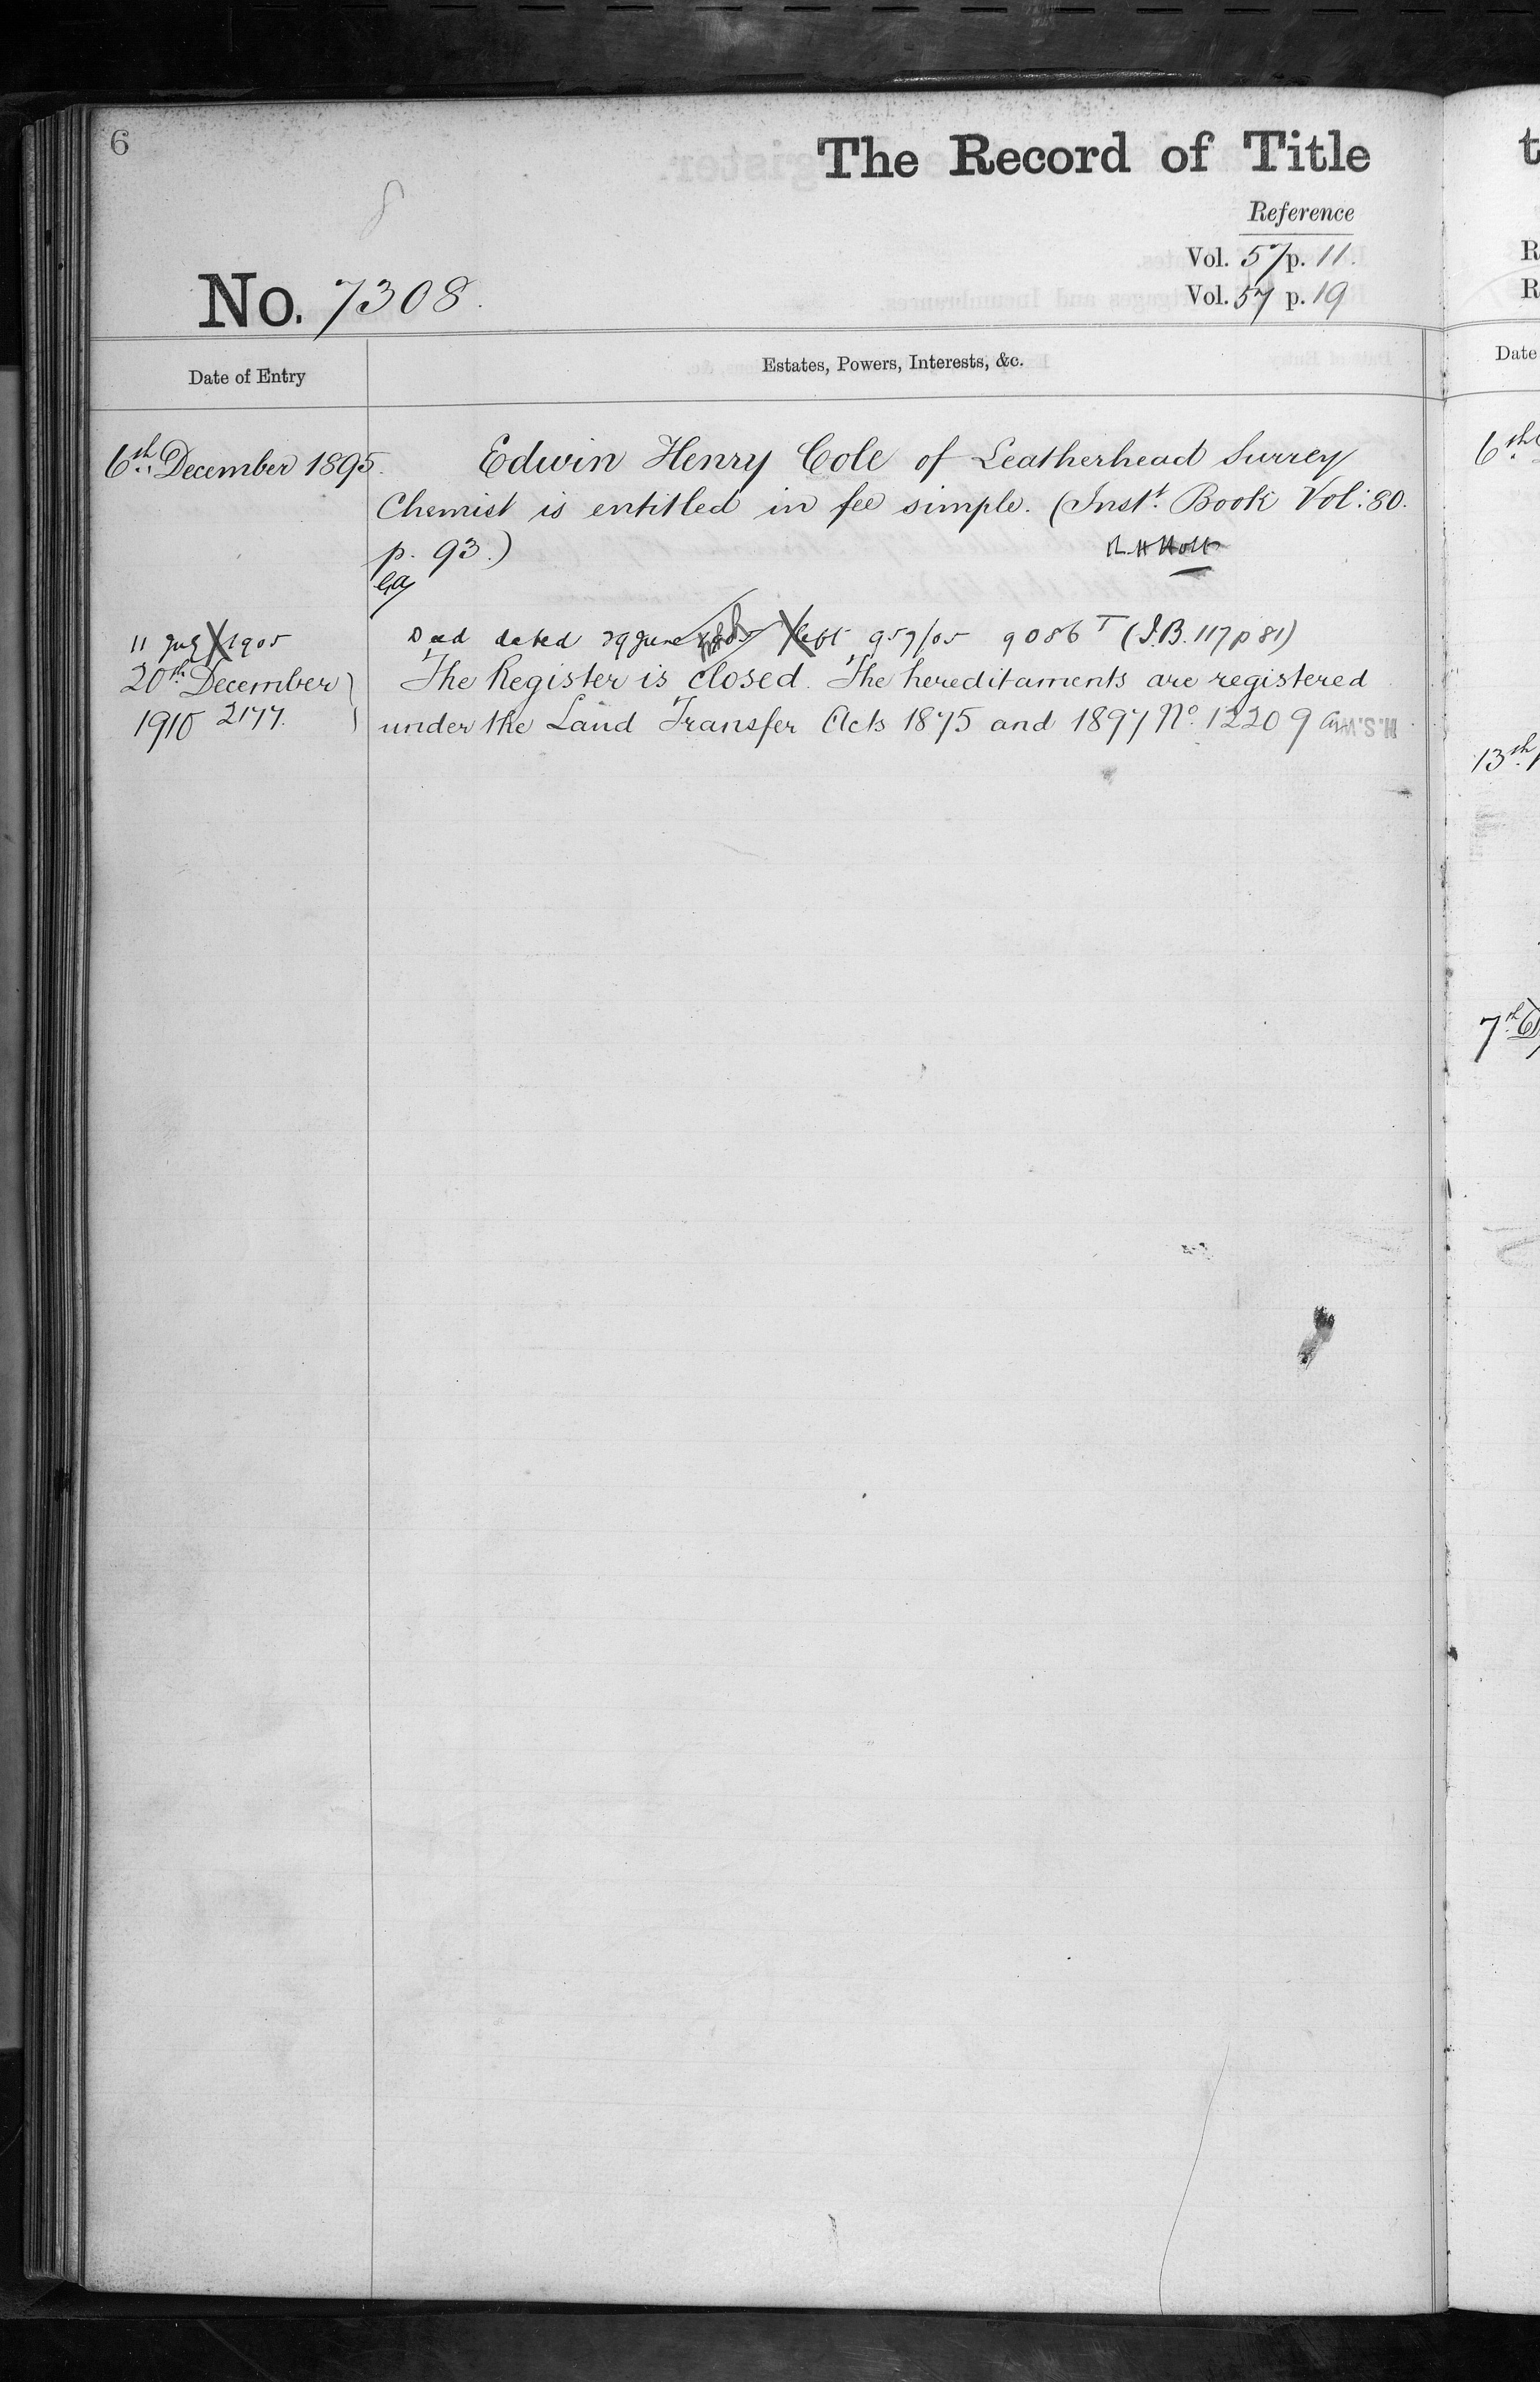 6
The Record of Title
Reference
Vol. 57 p. 11.
Vol. 57 p. 19
No. 7308.
Date of Entry
Estates, Powers, Interests, &c.
6th December 1895.
Edwin Henry Cole of Leatherhead Surrey
Chemist is entitled in fee simple. (Inst. Book Vol: 80.
p. 93.)
11 July 1905
Deed dated 29 June 1905 left 957/05 9086 T (I.B. 117 p 81)
20th December
1910 2177.
The Register is closed. The hereditaments are registered
under the Land Transfer Acts 1875 and 1897 No. 12209
t
R
R
Date
6th
13th
7th